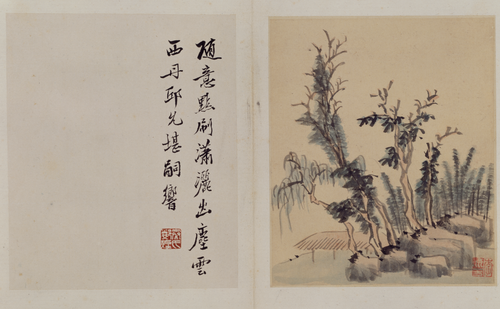 隨意點刷瀟灑出塵雲
西丹邱先堪嗣響